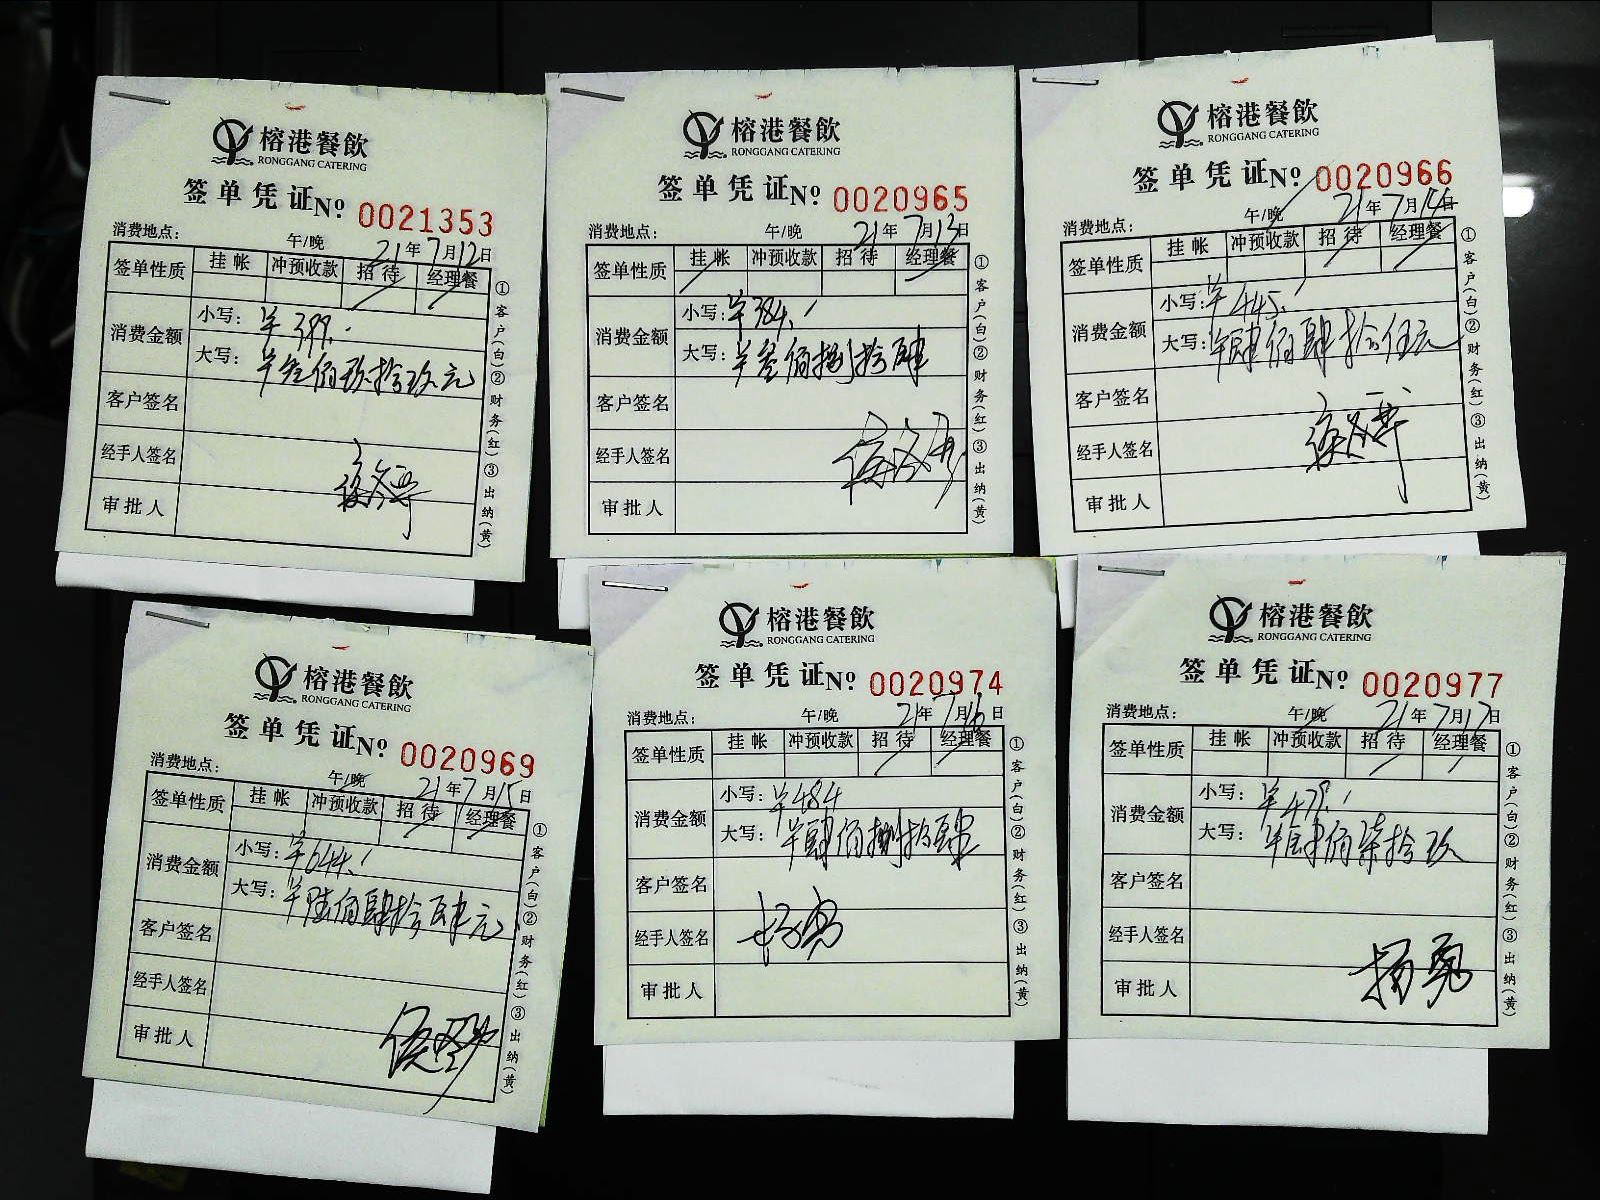 榕港餐飲
RONGGANG CATERING
签单凭证No 0021353
消费地点: 午/晚 21年7月12日
签单性质 挂帐 冲预收款 招待 经理餐
消费金额 小写: ¥399.
大写: ¥叁佰玖拾玖元
客户签名
经手人签名
审批人
①客户(白)②财务(红)③出纳(黄)
榕港餐飲
RONGGANG CATERING
签单凭证No 0020965
消费地点: 午/晚 21年7月13日
签单性质 挂帐 冲预收款 招待 经理餐
消费金额 小写: ¥384.
大写: ¥叁佰捌拾肆
客户签名
经手人签名
审批人
①客户(白)②财务(红)③出纳(黄)
榕港餐飲
RONGGANG CATERING
签单凭证No 0020966
午/晚 21年7月14日
签单性质 挂帐 冲预收款 招待 经理餐
消费金额 小写: ¥445.
大写: ¥肆佰肆拾伍元
客户签名
经手人签名
审批人
①客户(白)②财务(红)③出纳(黄)
榕港餐飲
RONGGANG CATERING
签单凭证No 0020969
消费地点: 午/晚 21年7月15日
签单性质 挂帐 冲预收款 招待 经理餐
消费金额 小写: ¥644.
大写: ¥陆佰肆拾肆元
客户签名
经手人签名
审批人
①客户(白)②财务(红)③出纳(黄)
榕港餐飲
RONGGANG CATERING
签单凭证No 0020974
消费地点: 午/晚 21年7月16日
签单性质 挂帐 冲预收款 招待 经理餐
消费金额 小写: ¥484
大写: ¥肆佰捌拾肆
客户签名
经手人签名
审批人
①客户(白)②财务(红)③出纳(黄)
榕港餐飲
RONGGANG CATERING
签单凭证No 0020977
消费地点: 午/晚 21年7月17日
签单性质 挂帐 冲预收款 招待 经理餐
消费金额 小写: ¥479.
大写: ¥肆佰柒拾玖
客户签名
经手人签名
审批人
①客户(白)②财务(红)③出纳(黄)